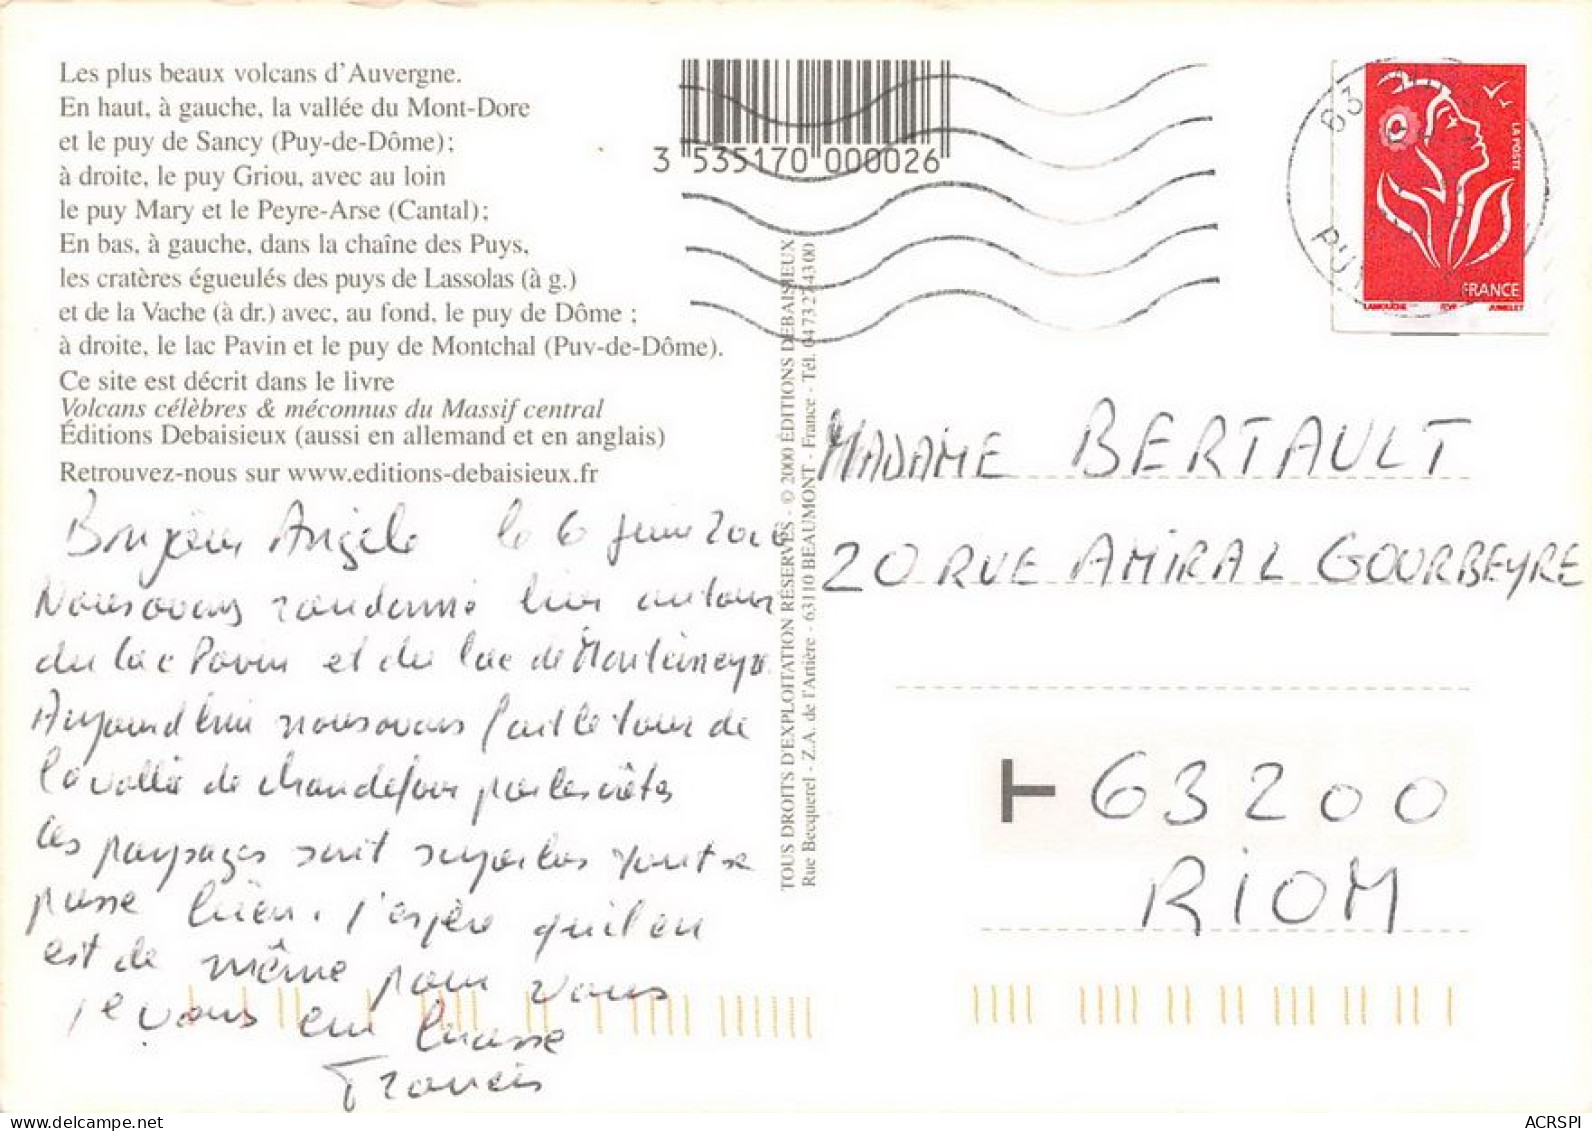 Les plus beaux volcans d'Auvergne.
En haut, à gauche, la vallée du Mont-Dore
et le puy de Sancy (Puy-de-Dôme);
à droite, le puy Griou, avec au loin
le puy Mary et le Peyre-Arse (Cantal);
En bas, à gauche, dans la chaîne des Puys,
les cratères égueulés des puys de Lassolas (à g.)
et de la Vache (à dr.) avec, au fond, le puy de Dôme ;
à droite, le lac Pavin et le puy de Montchal (Puy-de-Dôme).
Ce site est décrit dans le livre
Volcans célèbres & méconnus du Massif central
Éditions Debaisieux (aussi en allemand et en anglais)
Retrouvez-nous sur www.editions-debaisieux.fr
Bonjour Angèle le 6 Juin
Nous avons randonné hier autour
du lac Pavin et du lac de Montcineyre
Aujourd'hui nous avons fait le tour de
la vallée de chaudefour par les crêtes
les paysages sont superbes tout se
passe bien. J'espère qu'il en
est de même pour vous
je vous embrasse
Francis
3 535170 000026
TOUS DROITS D'EXPLOITATION RÉSERVÉS - © 2000 ÉDITIONS DEBAISIEUX
Rue Becquerel - Z.A. de l'Artière - 63110 BEAUMONT - France - Tél. 0473274300
63
PUY
LA POSTE
FRANCE
LAMOUCHE ITVF JUMELET
MADAME BERTAULT
20 RUE AMIRAL GOURBEYRE
63200
RIOM
ACRSPI